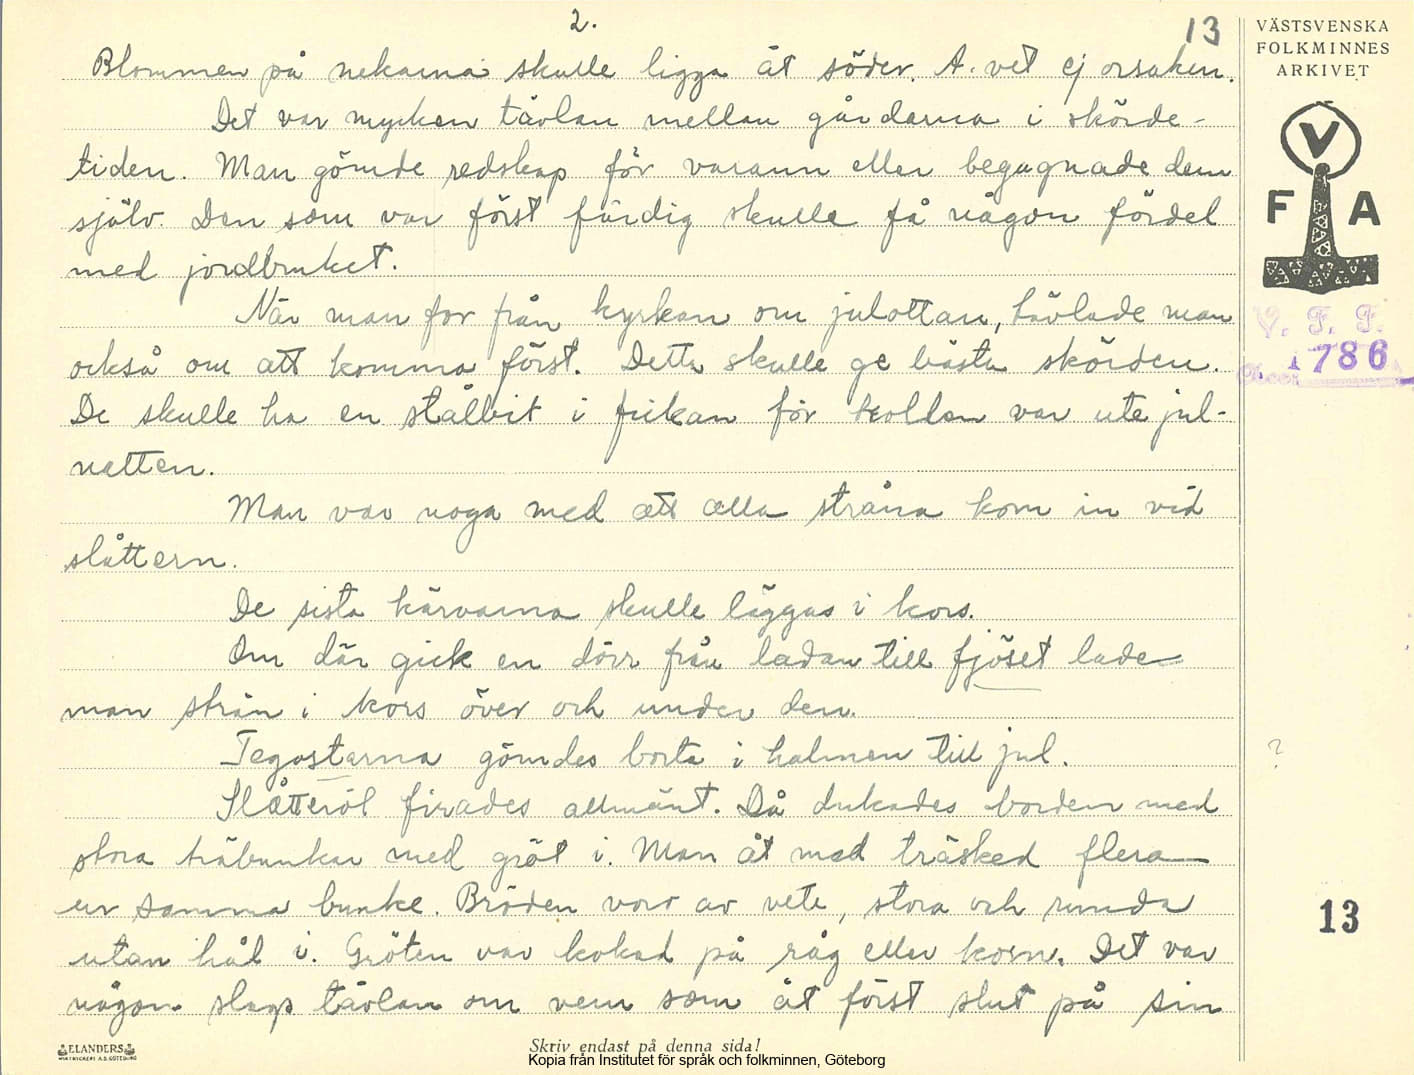 2.
13
Blommen på nekarna skulle ligga åt söder. A. vet ej orsaken.
Det var mycken tävlan mellan gårdarna i skörde-
tiden. Man gömde redskap för varann eller begagnade dem
själv. Den som var först färdig skulle få någon fördel
med jordbruket.
När man for från kyrkan om julottan, tävlade man
också om att komma först. Detta skulle ge bästa skörden.
De skulle ha en stålbit i fickan för trollen var ute jul-
natten.
Man var noga med att alla stråna kom in vid
slåttern.
De sista kärvarna skulle läggas i kors.
Om där gick en dörr från ladan till fjöset lade
man strån i kors över och under den.
Tegostarna gömdes borta i halmen till jul.
Slåtteröl firades allmänt. Då dukades borden med
stora träbunkar med gröt i. Man åt med träsked flera
ur samma bunke. Bröden voro av vete, stora och runda
utan hål i. Gröten var kokad på råg eller korn. Det var
någon slags tävlan om vem som åt först slut på sin
VÄSTSVENSKA
FOLKMINNES
ARKIVET
V
F A
V. F. F.
1786
?
13
ELANDERS
Skriv endast på denna sida!
Kopia från Institutet för språk och folkminnen, Göteborg